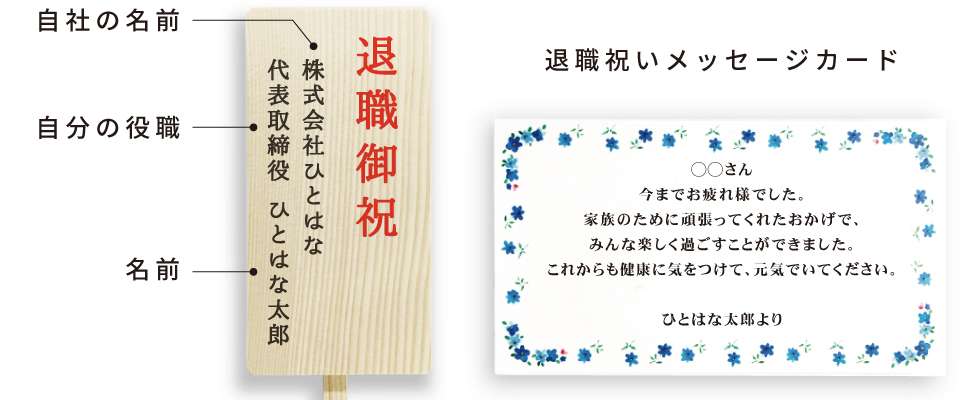 自社の名前
自分の役職
名前
退職御祝
株式会社ひとはな
代表取締役 ひとはな太郎
退職祝いメッセージカード
〇〇さん
今までお疲れ様でした。
家族のために頑張ってくれたおかげで、
みんな楽しく過ごすことができました。
これからも健康に気をつけて、元気でいてください。
ひとはな太郎より